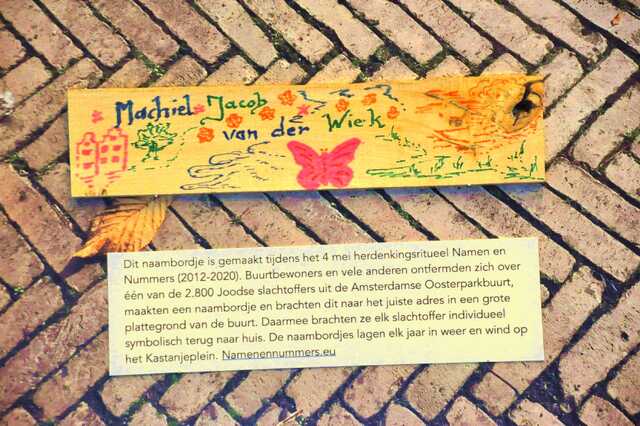 Machiel Jacob
van der Wiek
Dit naambordje is gemaakt tijdens het 4 mei herdenkingsritueel Namen en
Nummers (2012-2020). Buurtbewoners en vele anderen ontfermden zich over
één van de 2.800 Joodse slachtoffers uit de Amsterdamse Oosterparkbuurt,
maakten een naambordje en brachten dit naar het juiste adres in een grote
plattegrond van de buurt. Daarmee brachten ze elk slachtoffer individueel
symbolisch terug naar huis. De naambordjes lagen elk jaar in weer en wind op
het Kastanjeplein. Namenennummers.eu